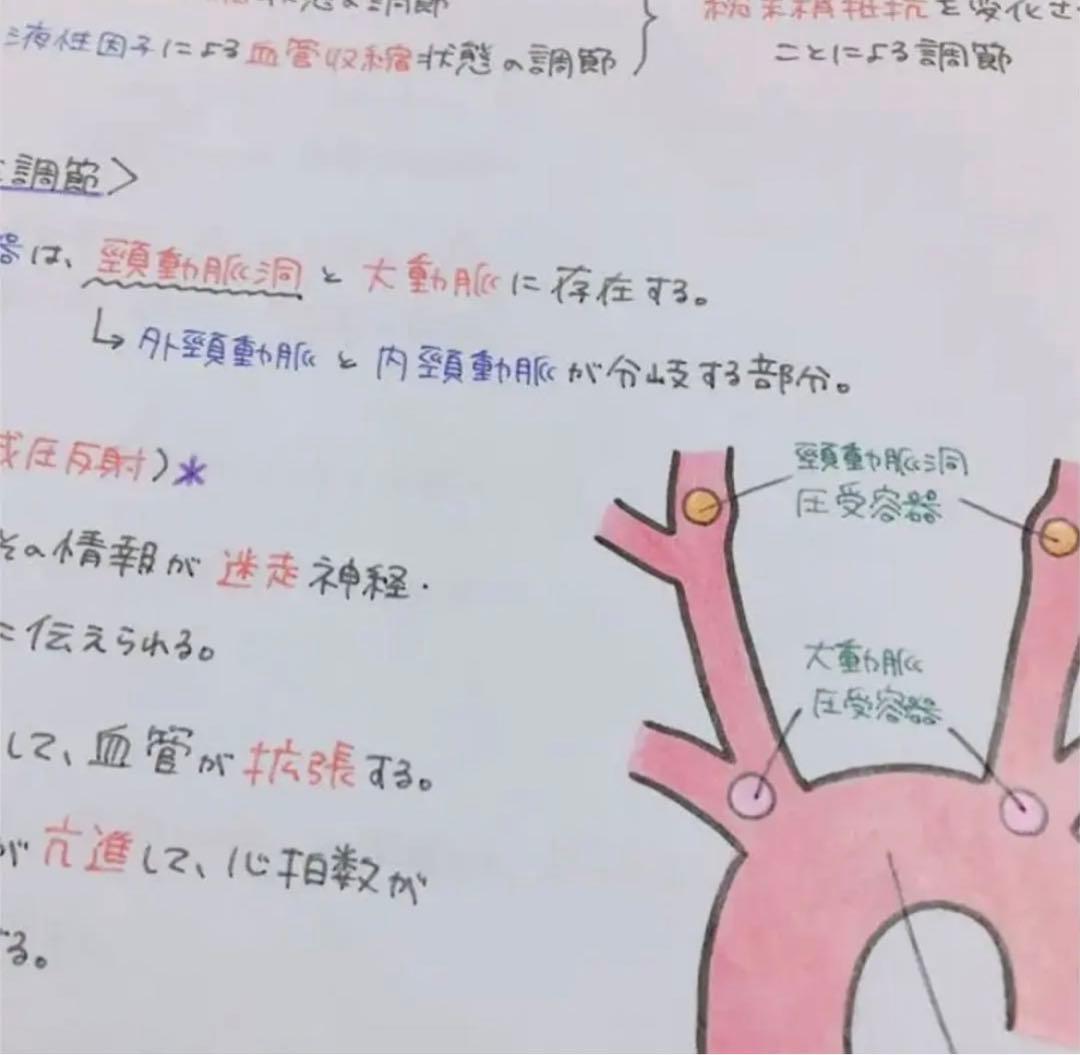 状態の調節
液性因子による血管収縮状態の調節
総末梢抵抗を変化さ
ことによる調節
調節>
器は、頸動脈洞と大動脈に存在する。
↳外頸動脈と内頸動脈が分岐する部分。
減圧反射)*
その情報が迷走神経・
に伝えられる。
して、血管が拡張する。
が亢進して、心拍数が
する。
頸動脈洞
圧受容器
大動脈
圧受容器